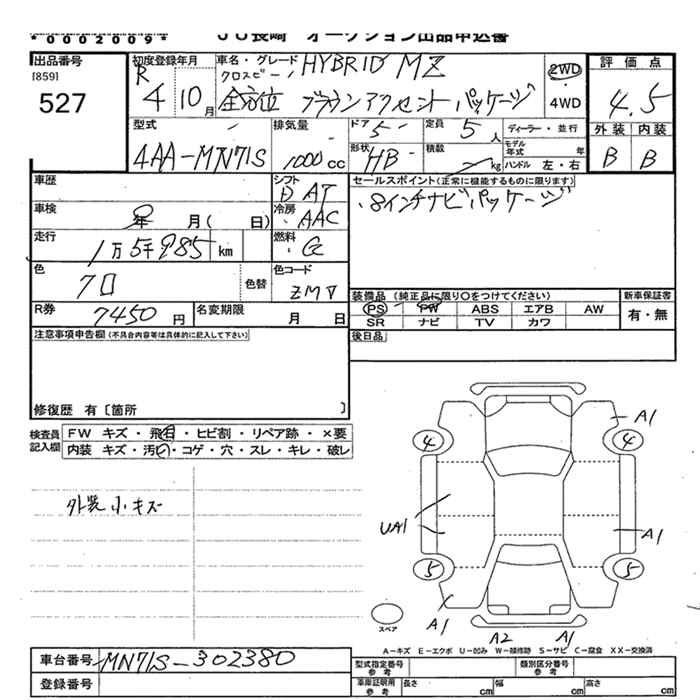 *0002009*
JU長崎 オークション出品申込書
出品番号 [859] 527
初度登録年月 R 4年 10月
車名・グレード クロスビー HYBRID MZ
全方位 ブラウンアクセントパッケージ
2WD ・ 4WD
評価点 4.5
外装 内装
B B
型式 4AA-MN71S
排気量 1000cc
ドア 5
定員 5人
ディーラー・並行
形状 HB
積載 kg
モデル年式 年
ハンドル 左・右
車歴
シフト D AT
セールスポイント(正常に機能するものに限ります)
・8インチナビパッケージ
車検 年 月( 日)
冷房 AAC
走行 1万5千985 km
燃料 G
色 クロ
色替
色コード ZMV
装備品(純正品に限り〇をつけてください)
新車保証書
PS ・ PW ・ ABS ・ エアB ・ AW
SR ・ ナビ ・ TV ・ カワ
有・無
R券 7450円
名変期限 月 日
注意事項申告欄(不具合内容等は具体的に記入して下さい)
後日品
修復歴 有〔箇所 〕
検査員記入欄
FW キズ・飛石・ヒビ割・リペア跡・×要
内装 キズ・汚レ・コゲ・穴・スレ・キレ・破レ
外装小キズ
A1
4 4
UA1 A1
5 5
A1 A2 A1
スペア
A-キズ E-エクボ U-凹み W-補修跡 S-サビ C-腐食 XX-交換済
車台番号 MN71S-302380
登録番号
型式指定番号 参考
類別区分番号 参考
車庫証明用 参考 長さ cm 幅 cm 高さ cm